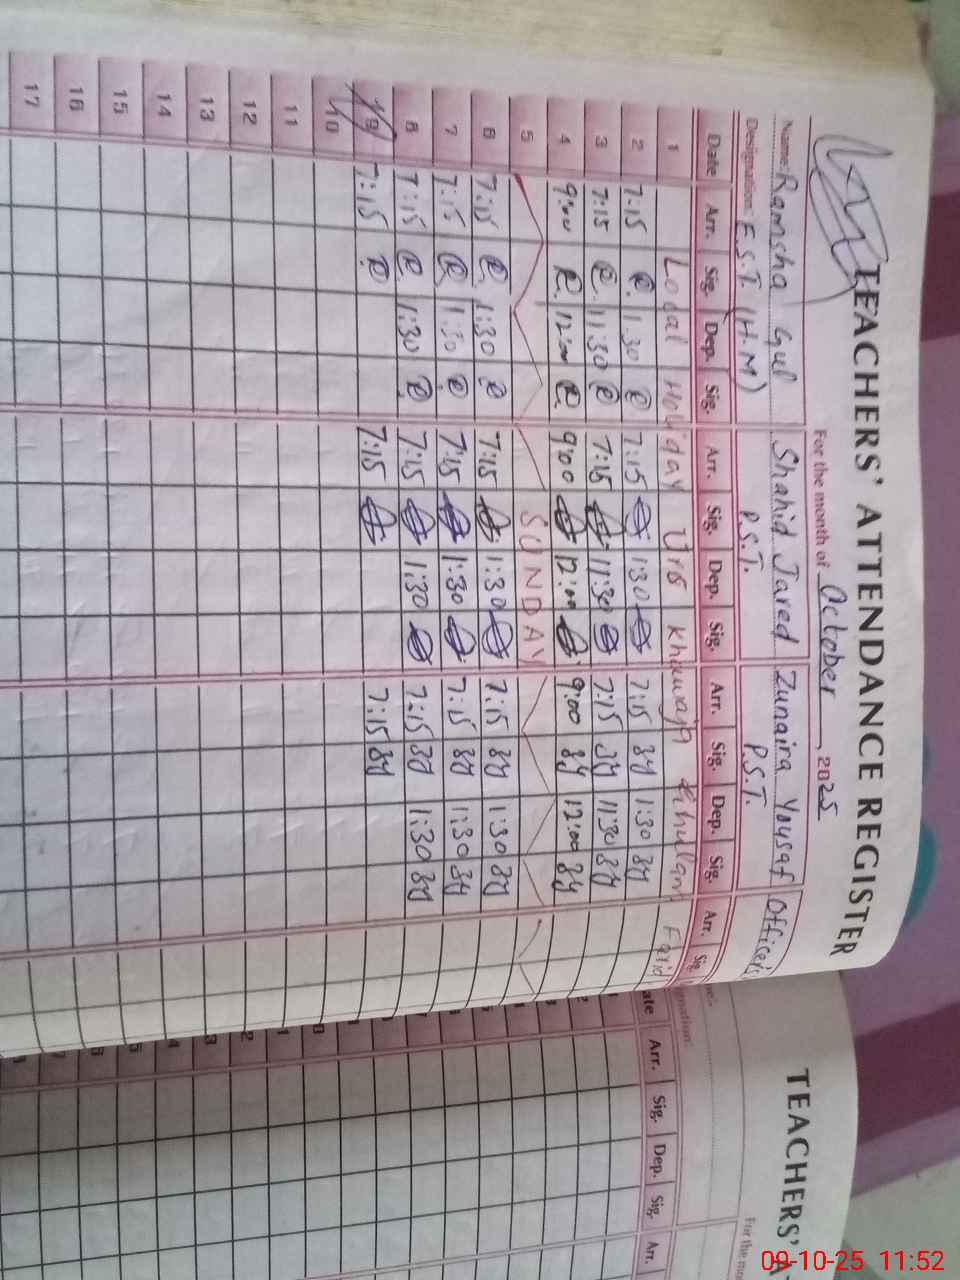 TEACHERS' ATTENDANCE REGISTER
For the month of October, 2025
Name: Ramsha Gul Shahid Javed Zunaira Yousaf Officers
Designation: E.S.T (H.M) P.S.T. P.S.T.
Date Arr. Sig. Dep. Sig. Arr. Sig. Dep. Sig. Arr. Sig. Dep. Sig. Arr. Sig.
1 Local Holiday Urs Khawaja Ghulam Farid
2 7:15 1:30 7:15 1:30 7:15 1:30
3 7:15 11:30 7:15 11:30 7:15 11:30
4 9:00 12:00 9:00 12:00 9:00 12:00
5 SUNDAY
6 7:15 1:30 7:15 1:30 7:15 1:30
7 7:15 1:30 7:15 1:30 7:15 1:30
8 7:15 1:30 7:15 1:30 7:15 1:30
9 7:15 7:15 7:15
10
11
12
13
14
15
16
17
TEACHERS' A
For the mo
ate Arr. Sig. Dep. Sig. Arr.
09-10-25 11:52